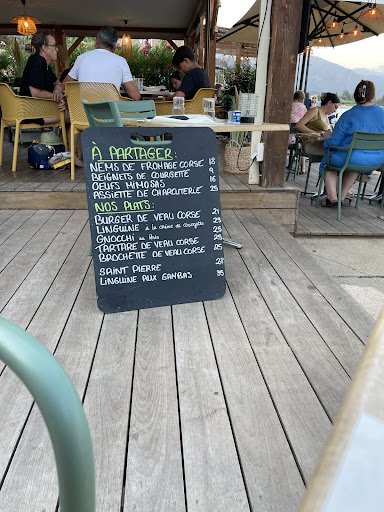 À PARTAGER:
NEMS DE FROMAGE CORSE 18
BEIGNETS DE COURGETTE 9
OEUFS MIMOSAS 16
ASSIETTE DE CHARCUTERIE 25
NOS PLATS:
BURGER DE VEAU CORSE 21
LINGUINE à la crème de courgette 25
GNOCCHI au Pesto 25
TARTARE DE VEAU CORSE 25
BROCHETTE DE VEAU CORSE 25
SAINT PIERRE 28
LINGUINE AUX GAMBAS 35